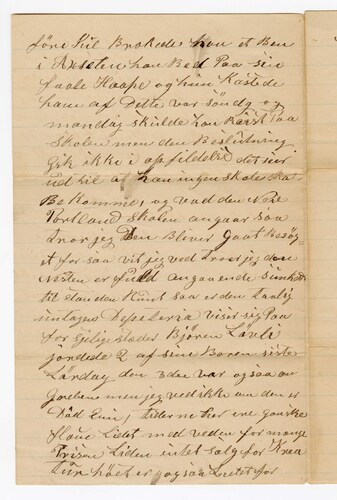 före Jul Brakede han et Ben
i Axselen han Red Paa sin
faale Haape og hun Kastede
ham af Dette var söndg og
mandag skulde han Reist Paa
Skolen men den Beslutning
gik ikke i opfildelse det ser
ud til at han ingen skole ska
Bekomme, og vad den Nore
Portland Skolen angaar saa
tror jeg Den Bliver Gaat Besög
et for saa vit jeg ved tror jeg den
nesten er fuld angaaende sünhets
tilstanden Rundt saa er den Taalig
untagen Difteria viser sig Paa
for sjelige stæder Björen Lövli
jordede 2 af sine Boren siste
Lördag den 3die var ogsaa
men jeg ved ikke om den er
Död Enu, tiderne her ere ganske
flaue Lidet med veden for mange
Prisen Liden entet salg for Krea
Tür höet er ogsaa Lidet for